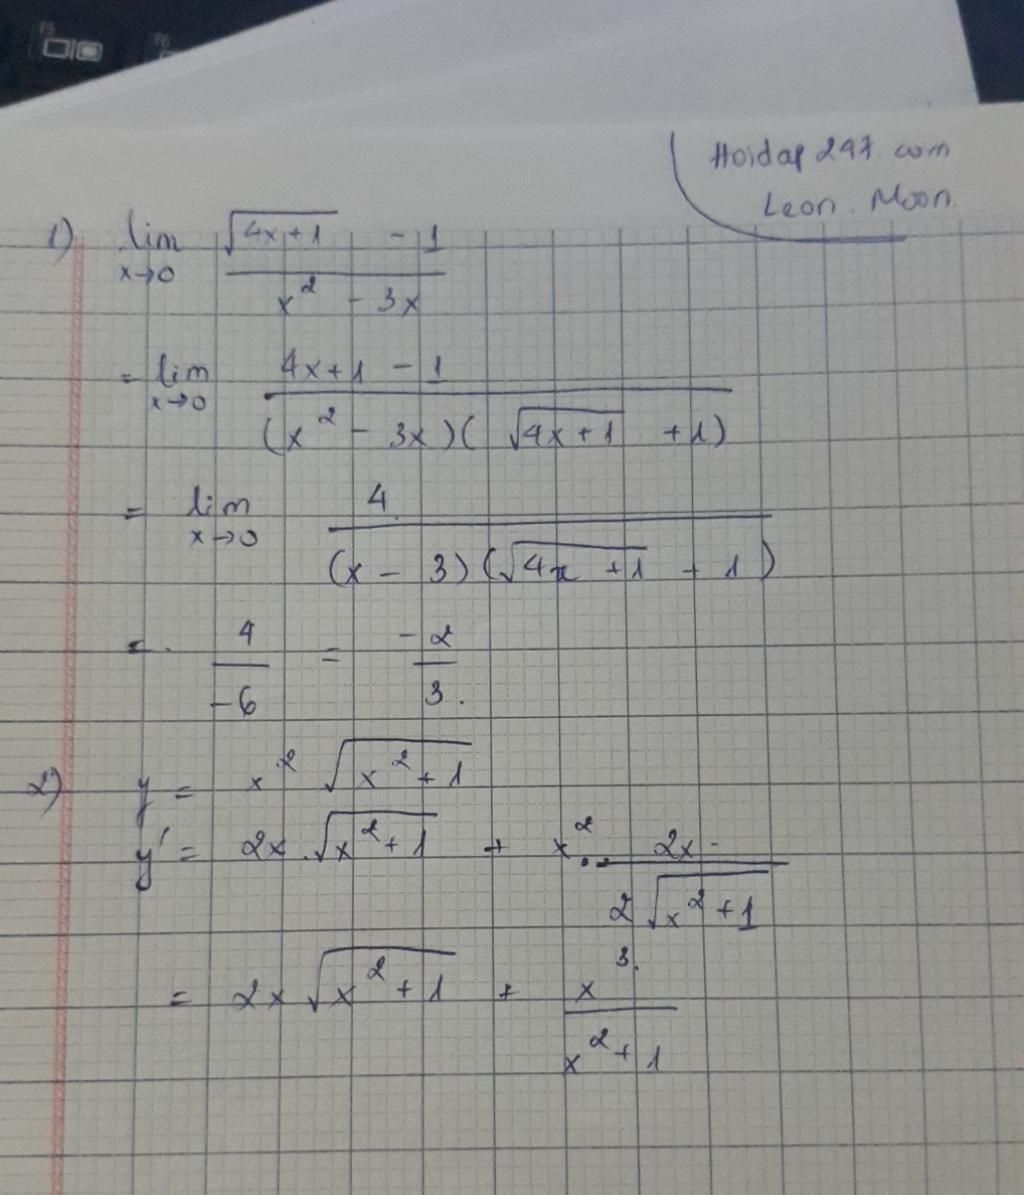 F5
F6
Hoidap 247.com
Leon. Moon.
1) lim x→0 (√(4x+1) - 1) / (x² - 3x)
= lim x→0 (4x+1 - 1) / ((x² - 3x)(√(4x+1) + 1))
= lim x→0 4 / ((x - 3)(√(4x+1) + 1))
= 4/-6 = -2/3.
2) y = x² √(x²+1)
y' = 2x.√(x²+1) + x². 2x / (2√(x²+1))
= 2x √(x²+1) + x³ / (x²+1)